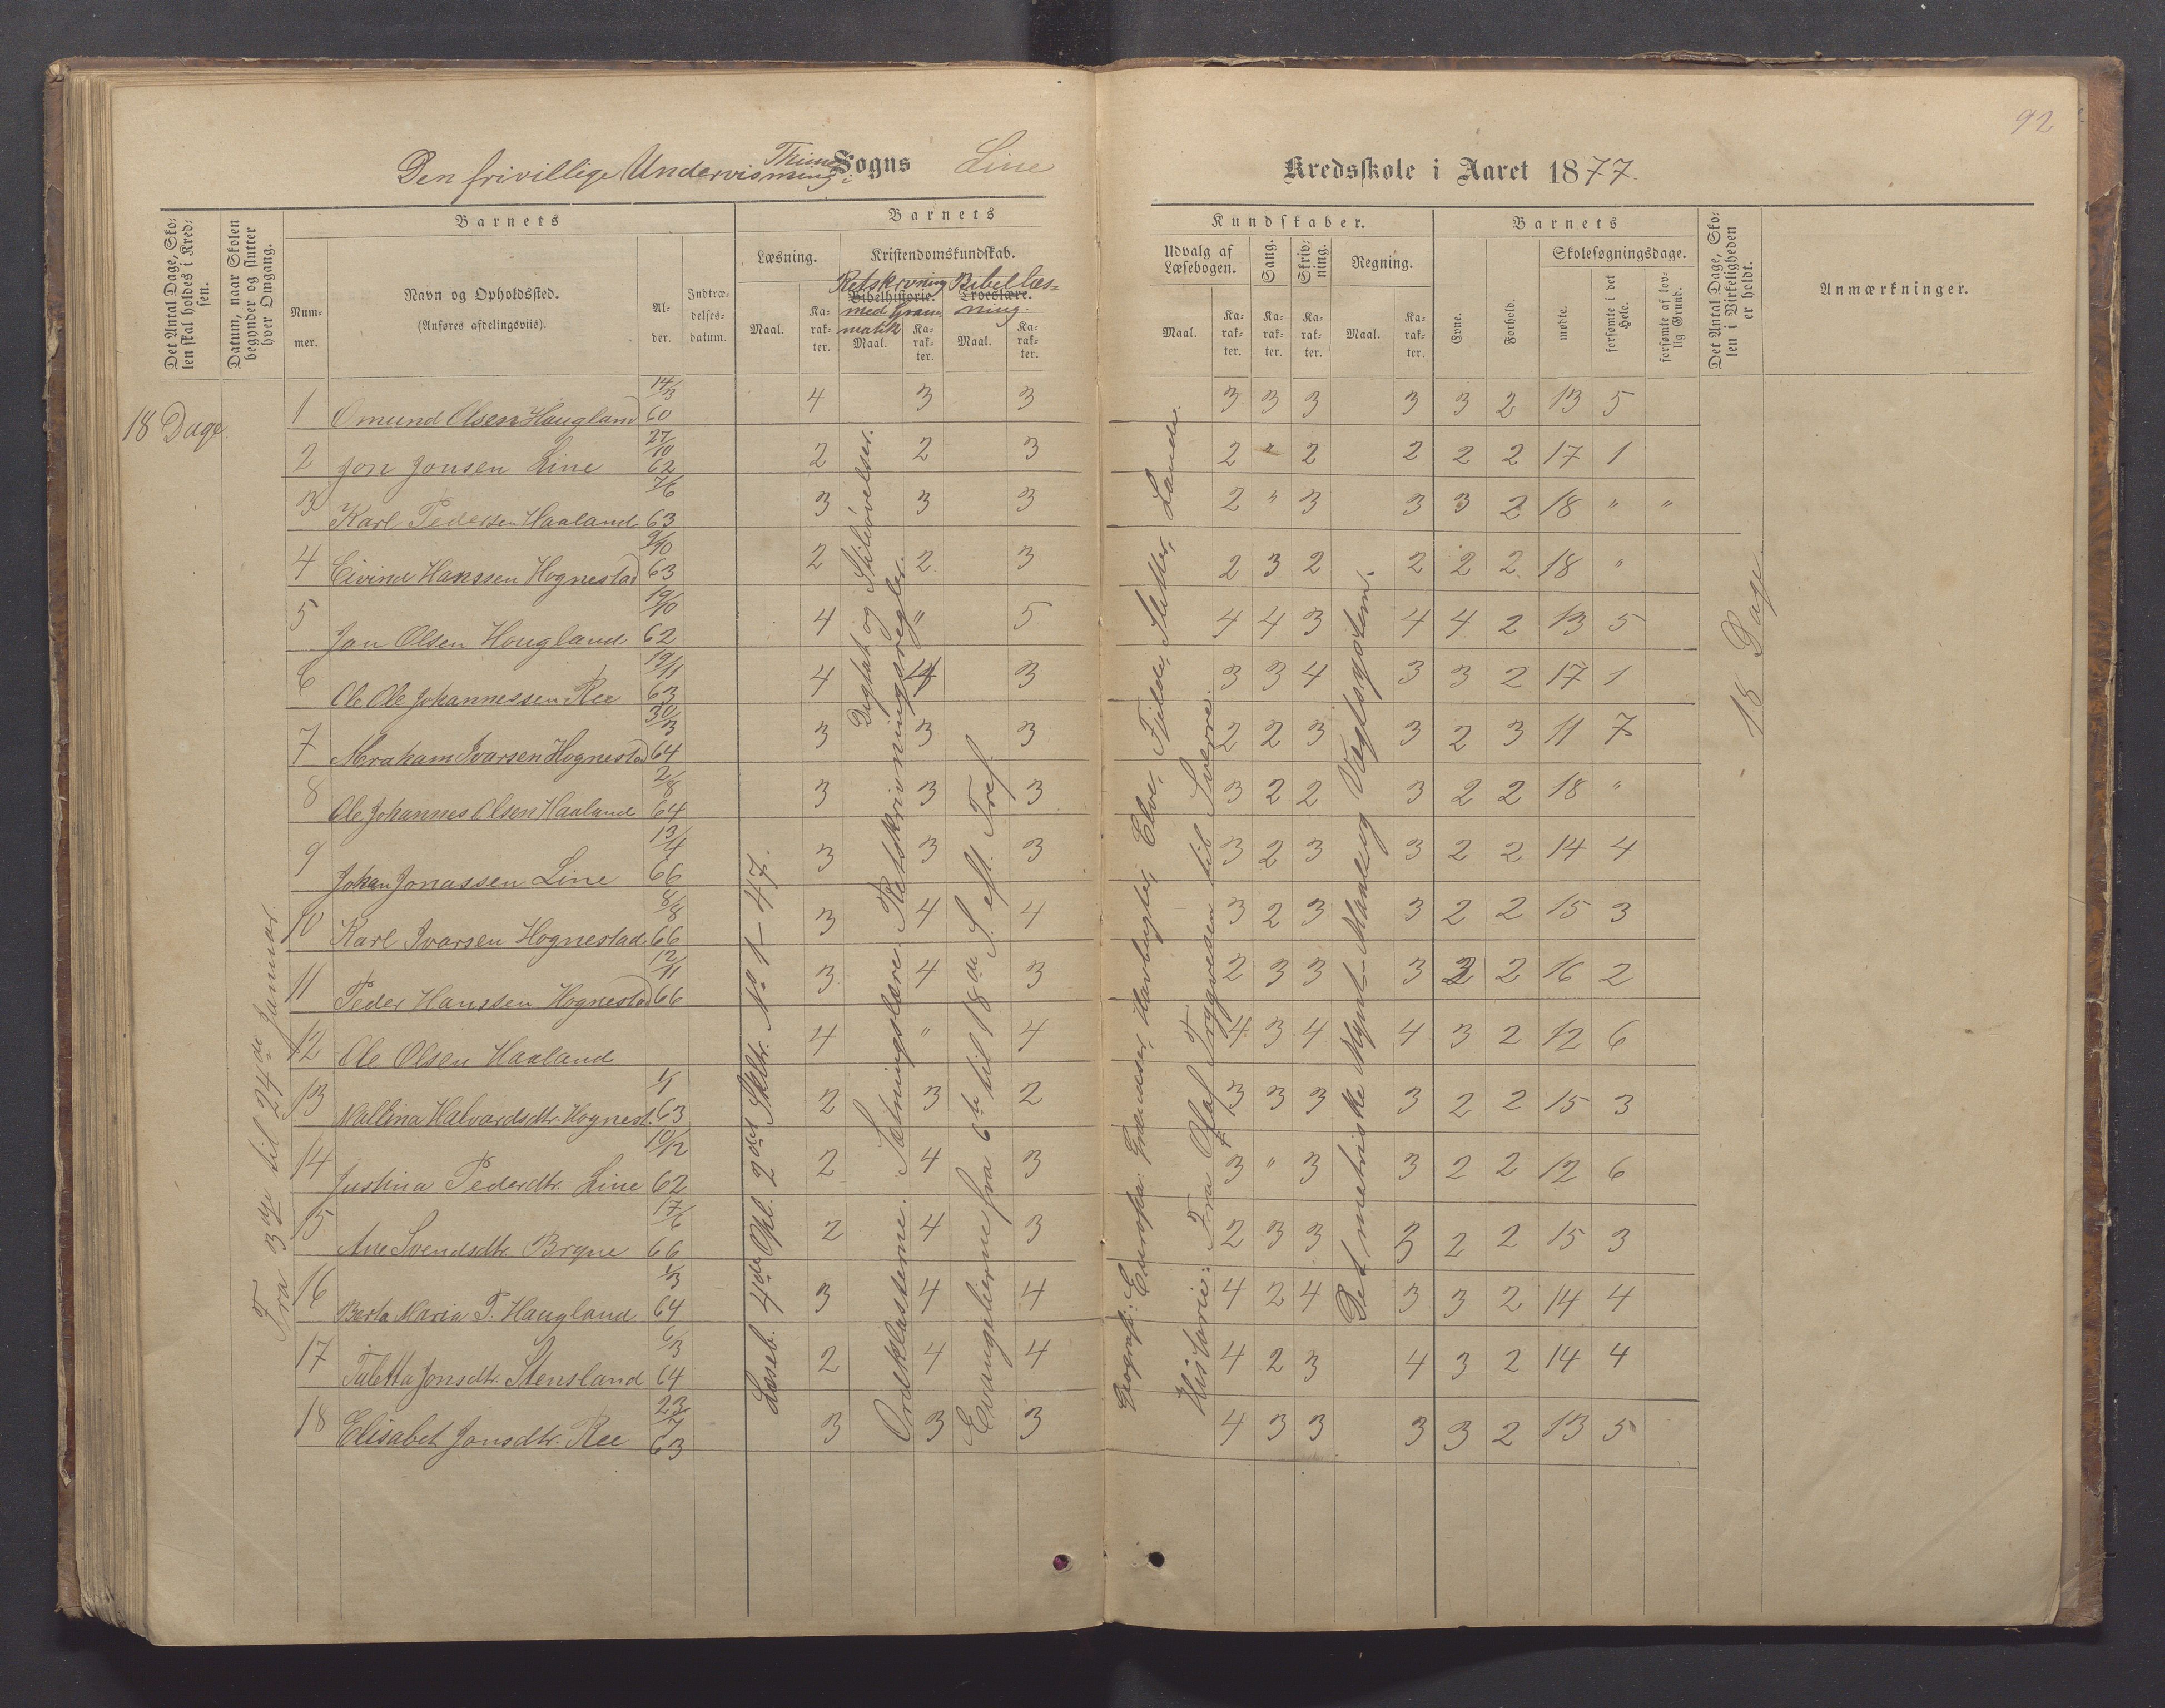 92
Den frivillige Undervisning i Thime Sogns Line Kredsskole i Aaret 1877.
Det Antal Dage, Skolen skal holdes i Kredsen.
Datum, naar Skolen begynder og slutter hver Omgang.
Barnets
Nummer.
Navn og Opholdssted.
(Anføres afdelingsviis).
Alder.
Indtrædelsesdatum.
Barnets
Læsning.
Maal.
Karakter.
Kristendomskundskab.
Retskrivning med Grammatik
Bibelhistorie.
Maal.
Karakter.
Bibellæsning.
Troeslære.
Maal.
Karakter.
Kundskaber.
Udvalg af Læsebogen.
Maal.
Karakter.
Sang.
Karakter.
Skrivning.
Karakter.
Regning.
Maal.
Karakter.
Barnets
Evne.
Forhold.
Skolesøgningsdage.
mødte.
forsømte i det Hele.
forsømte af lovlig Grund.
Det Antal Dage, Skolen i Virkeligheden er holdt.
Anmærkninger.
18 Dage.
Fra 3die til 24de Januar.
Læseb. 4de Opl. 2det Skltr. No 1 - 47.
Ordklasserne. Sætningslære. Retskrivningsregler.
Digtat og Stiløvelser.
Evangelierne fra 6te til 18de S. eft. Tref.
Geografi: Europa: Grændser, Havbugter, Elve, Fjelde, Sletter, Lande.
Historie: Fra Olaf Trygvesen til Sverre.
Det metriske Mynt- Maal- og Vægtsystem.
18 Dage
1 Omund Olsen Haugland 14/3 60 4 3 3 3 3 3 3 3 2 13 5
2 Jon Jonsen Line 27/10 62 2 2 3 2 " 2 2 2 2 17 1
3 Karl Pedersen Haaland 7/6 63 3 3 3 2 " 3 3 3 2 18 " "
4 Eivind Hanssen Hognestad 9/10 63 2 2 3 2 3 2 2 2 2 18 "
5 Jan Olsen Hougland 19/10 62 4 " 5 4 4 3 4 4 2 13 5
6 Ole Ole Johannessen Ree 19/11 63 4 4 3 3 3 4 3 3 2 17 1
7 Abraham Ivarsen Hognestad 30/3 64 3 3 3 2 2 3 3 2 3 11 7
8 Ole Johannes Olsen Haaland 2/8 64 3 3 3 3 2 2 3 2 2 18 "
9 Johan Jonassen Line 13/4 66 3 3 3 3 2 3 3 2 2 14 4
10 Karl Ivarsen Hognestad 8/8 66 3 4 4 3 2 3 3 2 2 15 3
11 Peder Hanssen Hognestad 12/11 66 3 4 3 2 3 3 3 2 2 16 2
12 Ole Olsen Haaland 4 " 4 4 3 4 4 3 2 12 6
13 Mallina Halvardsdtr. Hognest. 1/1 63 2 3 2 3 3 3 3 2 2 15 3
14 Justina Pedersdtr. Line 10/12 62 2 4 3 3 " 3 3 2 2 12 6
15 Ane Svendsdtr. Bryne 17/6 66 2 4 3 2 3 3 3 2 2 15 3
16 Berta Maria T. Haugland 1/3 64 3 4 4 4 2 4 3 3 2 14 4
17 Taletta Jonsdtr. Stensland 6/3 64 2 4 4 4 2 3 4 3 2 14 4
18 Elisabet Jonsdtr. Ree 23/7 63 3 3 3 4 3 3 3 3 2 13 5